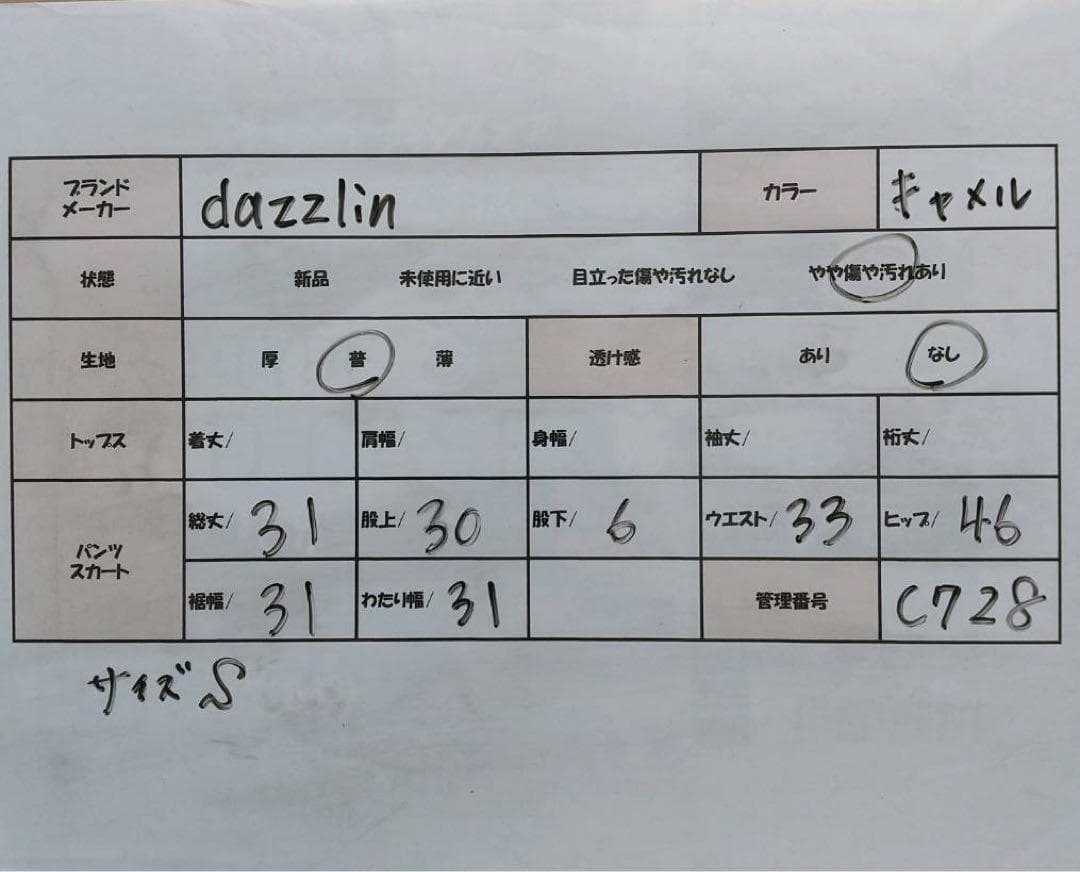 ブランド
メーカー dazzlin カラー キャメル
状態 新品 未使用に近い 目立った傷や汚れなし やや傷や汚れあり
生地 厚 普 薄 透け感 あり なし
トップス 着丈/ 肩幅/ 身幅/ 袖丈/ 裄丈/
パンツ
スカート 総丈/ 31 股上/ 30 股下/ 6 ウエスト/ 33 ヒップ/ 46
裾幅/ 31 わたり幅/ 31 管理番号 C728
サイズ S